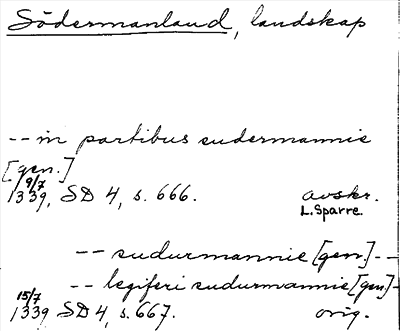 Södermanland, landskap
-- in partibus sudermannie
[gen.]
9/7
1339, SD 4, s. 666. avskr.
L. Sparre
-- sudurmannie [gen.] --
-- legiferi sudurmannie [gen] -
15/7
1339 SD 4, s. 667. orig.